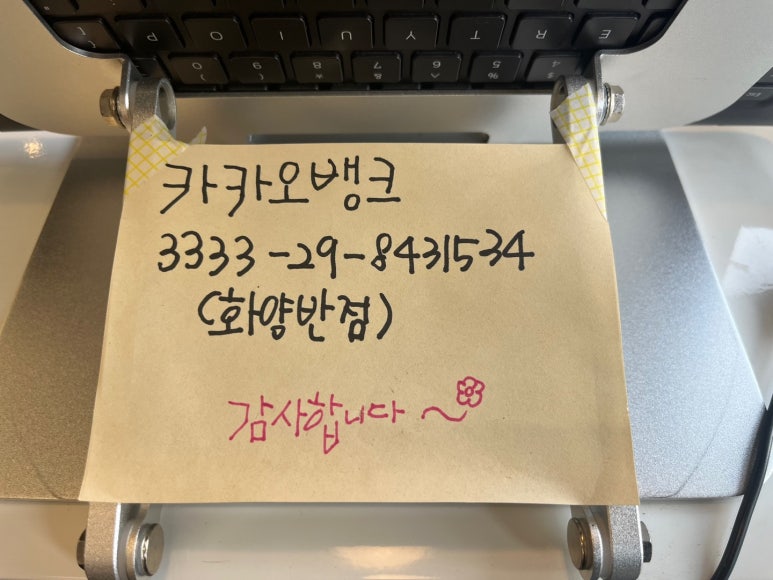 카카오뱅크
3333-29-8431534
(화양반점)
감사합니다~
E R T Y U I O P [
$ 4 % 5 ^ 6 & 7 * 8 ( 9 ) 0